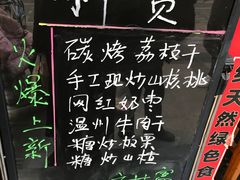 火爆上新
碳烤荔枝干
手工现炒山核桃
网红奶枣
温州牛肉干
糖炒板栗
糖炒山楂
天然绿色食